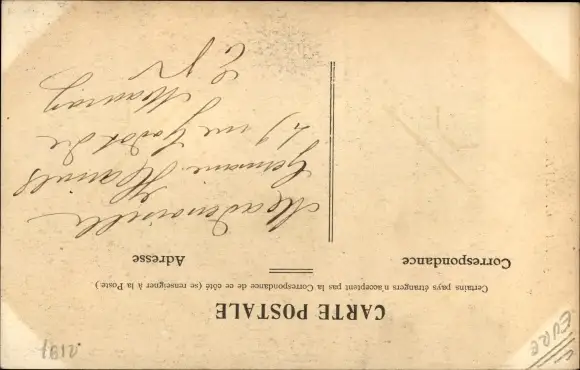 CARTE POSTALE
Certains pays étrangers n'acceptent pas la Correspondance de ce côté (se renseigner à la Poste)
Correspondance
Adresse
Mademoiselle
Germaine
rue Godot de
Mauroy
EURE